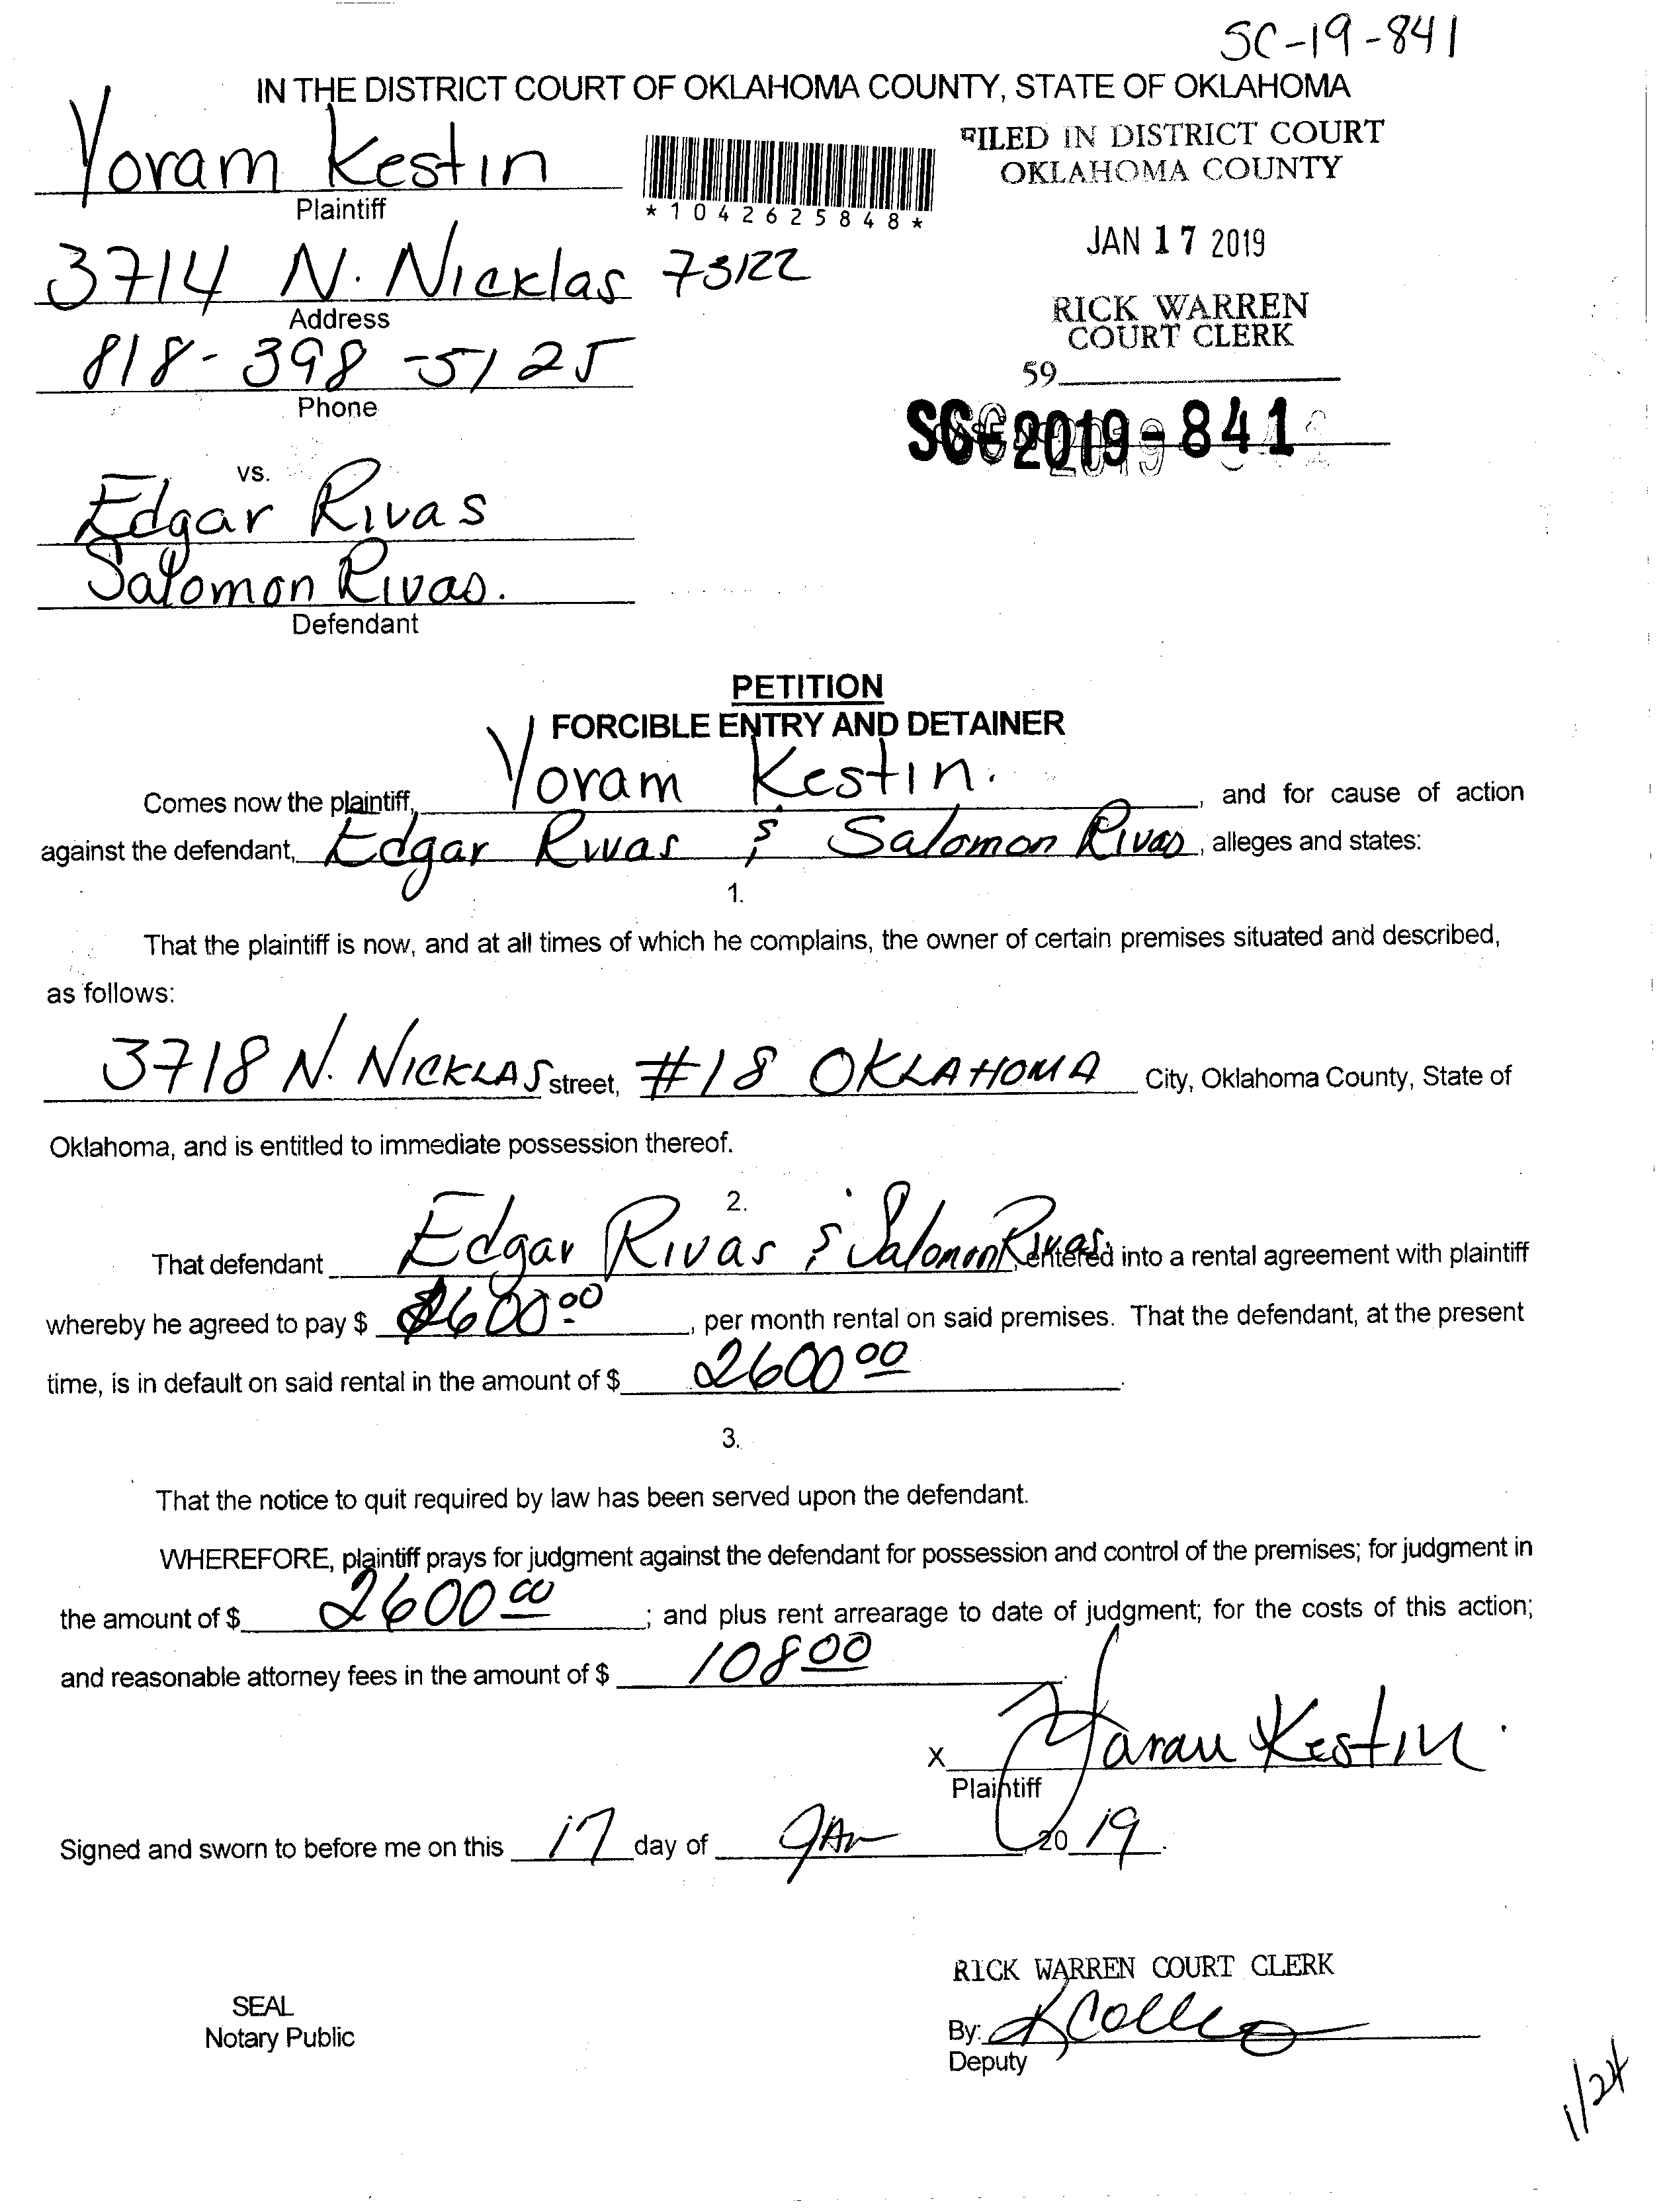 SC-19-841
IN THE DISTRICT COURT OF OKLAHOMA COUNTY, STATE OF OKLAHOMA
Yoram Kestin
Plaintiff
*1042625848*
FILED IN DISTRICT COURT
OKLAHOMA COUNTY
JAN 17 2019
RICK WARREN
COURT CLERK
59
3714 N. Nicklas 73122
Address
818-398-5125
Phone
SC-2019-841
vs.
Edgar Rivas
Salomon Rivas.
Defendant
PETITION
FORCIBLE ENTRY AND DETAINER
Comes now the plaintiff, Yoram Kestin. , and for cause of action
against the defendant, Edgar Rivas & Salomon Rivas, alleges and states:
1.
That the plaintiff is now, and at all times of which he complains, the owner of certain premises situated and described,
as follows:
3718 N. NICKLAS street, #18 OKLAHOMA City, Oklahoma County, State of
Oklahoma, and is entitled to immediate possession thereof.
2.
That defendant Edgar Rivas & Salomon Rivas, entered into a rental agreement with plaintiff
whereby he agreed to pay $ 600.00, per month rental on said premises. That the defendant, at the present
time, is in default on said rental in the amount of $ 2600 00.
3.
That the notice to quit required by law has been served upon the defendant.
WHEREFORE, plaintiff prays for judgment against the defendant for possession and control of the premises; for judgment in
the amount of $ 2600 00; and plus rent arrearage to date of judgment; for the costs of this action;
and reasonable attorney fees in the amount of $ 108 00.
X Yoram Kestin.
Plaintiff
Signed and sworn to before me on this 17 day of Jan, 20 19.
RICK WARREN COURT CLERK
SEAL
Notary Public
By:
Deputy
1/24